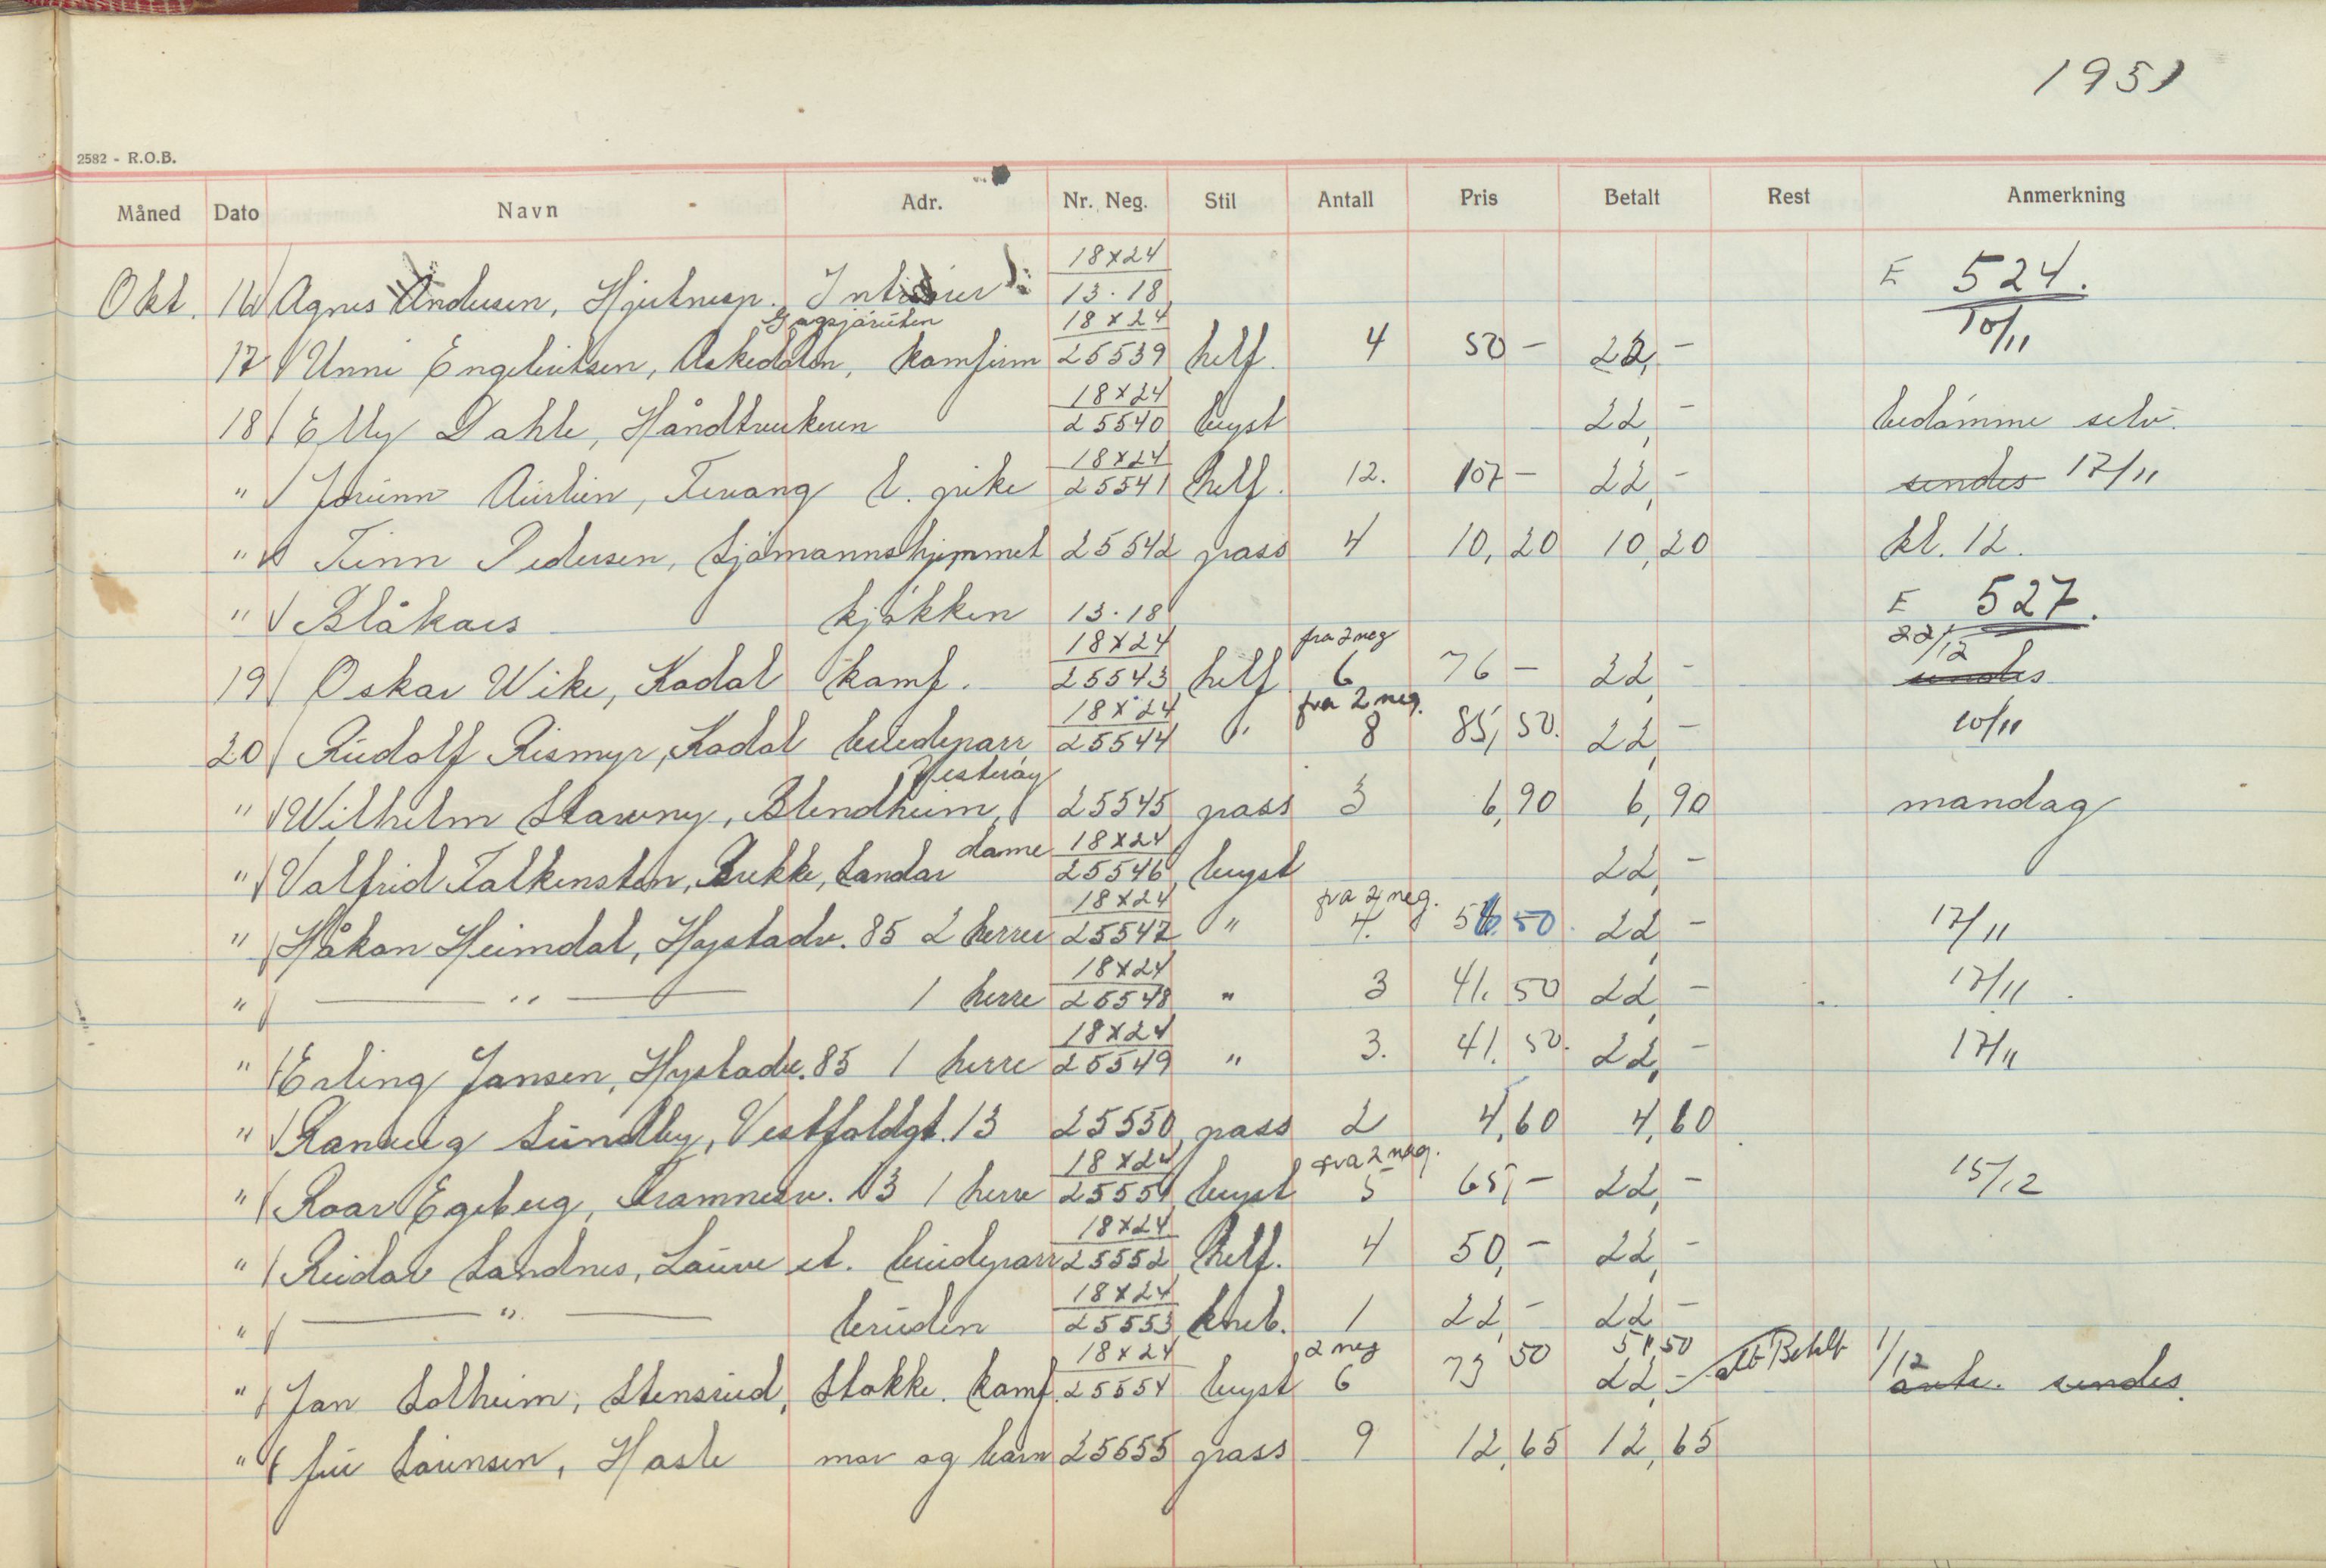 1951
2582 - R.O.B.
Måned Dato Navn Adr. Nr. Neg. Stil Antall Pris Betalt Rest Anmerkning
18x24
Okt. 16 Agnes Andersen, Hjertnesp. Interiør 13.18 E 524.
18x24 10/11
17 Unni Engebretsen, Askedalen, konfirm 25539 helf. 4 50 - 22,-
18x24
18 Elly Dahle, Håndtverkeren 25540 byst 22,- bedømme selv.
18x24
" Jorunn Aurlien, Tevang l. pike 25541 helf. 12. 107 - 22,- sendes 17/11
" Finn Pedersen, Sjømannshjemmet 25542 pass 4 10,20 10,20 kl. 12.
" Blåkors kjøkken 13.18 E 527.
18x24 fra 2 neg 22/12
19 Oskar Wike, Kodal konf. 25543 helf 6 76 - 22,- sendes
18x24 fra 2 neg.
20 Rudolf Rismyr, Kodal brudeparr 25544 " 8 85,50. 22,- 10/11
Vesterøy
" Wilhelm Stawny, Blendheim, 25545 pass 3 6,90 6,90 mandag
dame 18x24
" Valfrid Falkensten, Brekke, Sandar 25546 byst 22,-
18x24 fra 2 neg.
" Håkon Heimdal, Hystadv. 85 2 herrer 25547 " 4. 56.50. 22,- 17/11
18x24
" — " — 1 herre 25548 " 3 41.50 22,- 17/11
18x24
" Erling Jansen, Hystadv. 85 1 herre 25549 " 3. 41.50. 22,- 17/11
" Ranveig Sundby, Vestfoldgt. 13 25550 pass 2 4,60 4,60
18x24 fra 2 neg.
" Roar Egeberg, Framnesv. 13 1 herre 25551 byst 5 65,- 22,- 15/12
18x24
" Reidar Sandnes, Lauve st. brudeparr 25552 helf. 4 50,- 22,-
18x24
" — " — bruden 25553 kneb. 1 22,- 22,-
18x24 2 neg 51,50 alt Betalt 1/12
" Jan Solheim, Stensrud, Stokke. konf. 25554 byst 6 73 50 22,- sendes.
" fru Sørensen, Hasle mor og barn 25555 pass 9 12,65 12,65